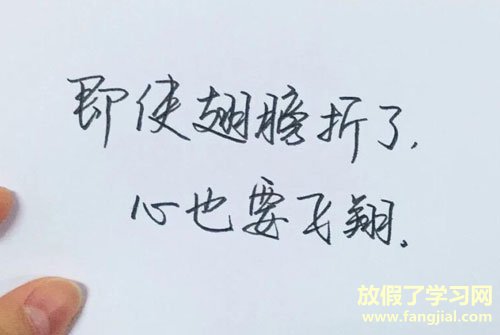 即使翅膀折了,
心也要飞翔.
放假了学习网
www.fangjial.com